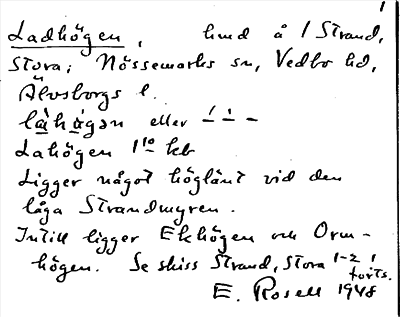 1
Ladhögen, hmd å 1 Strand,
Stora; Nössemarks sn, Vedbo hd,
Älvsborgs l.
là̱hà̱gən eller –́ –̀ –
Lahögen 1 10 kb
Ligger något höglänt vid den
låga Strandmyren.
Intill ligger Ekhögen och Orm-
högen. Se skiss Strand, Stora 1-2 1
forts.
E. Rosell 1948